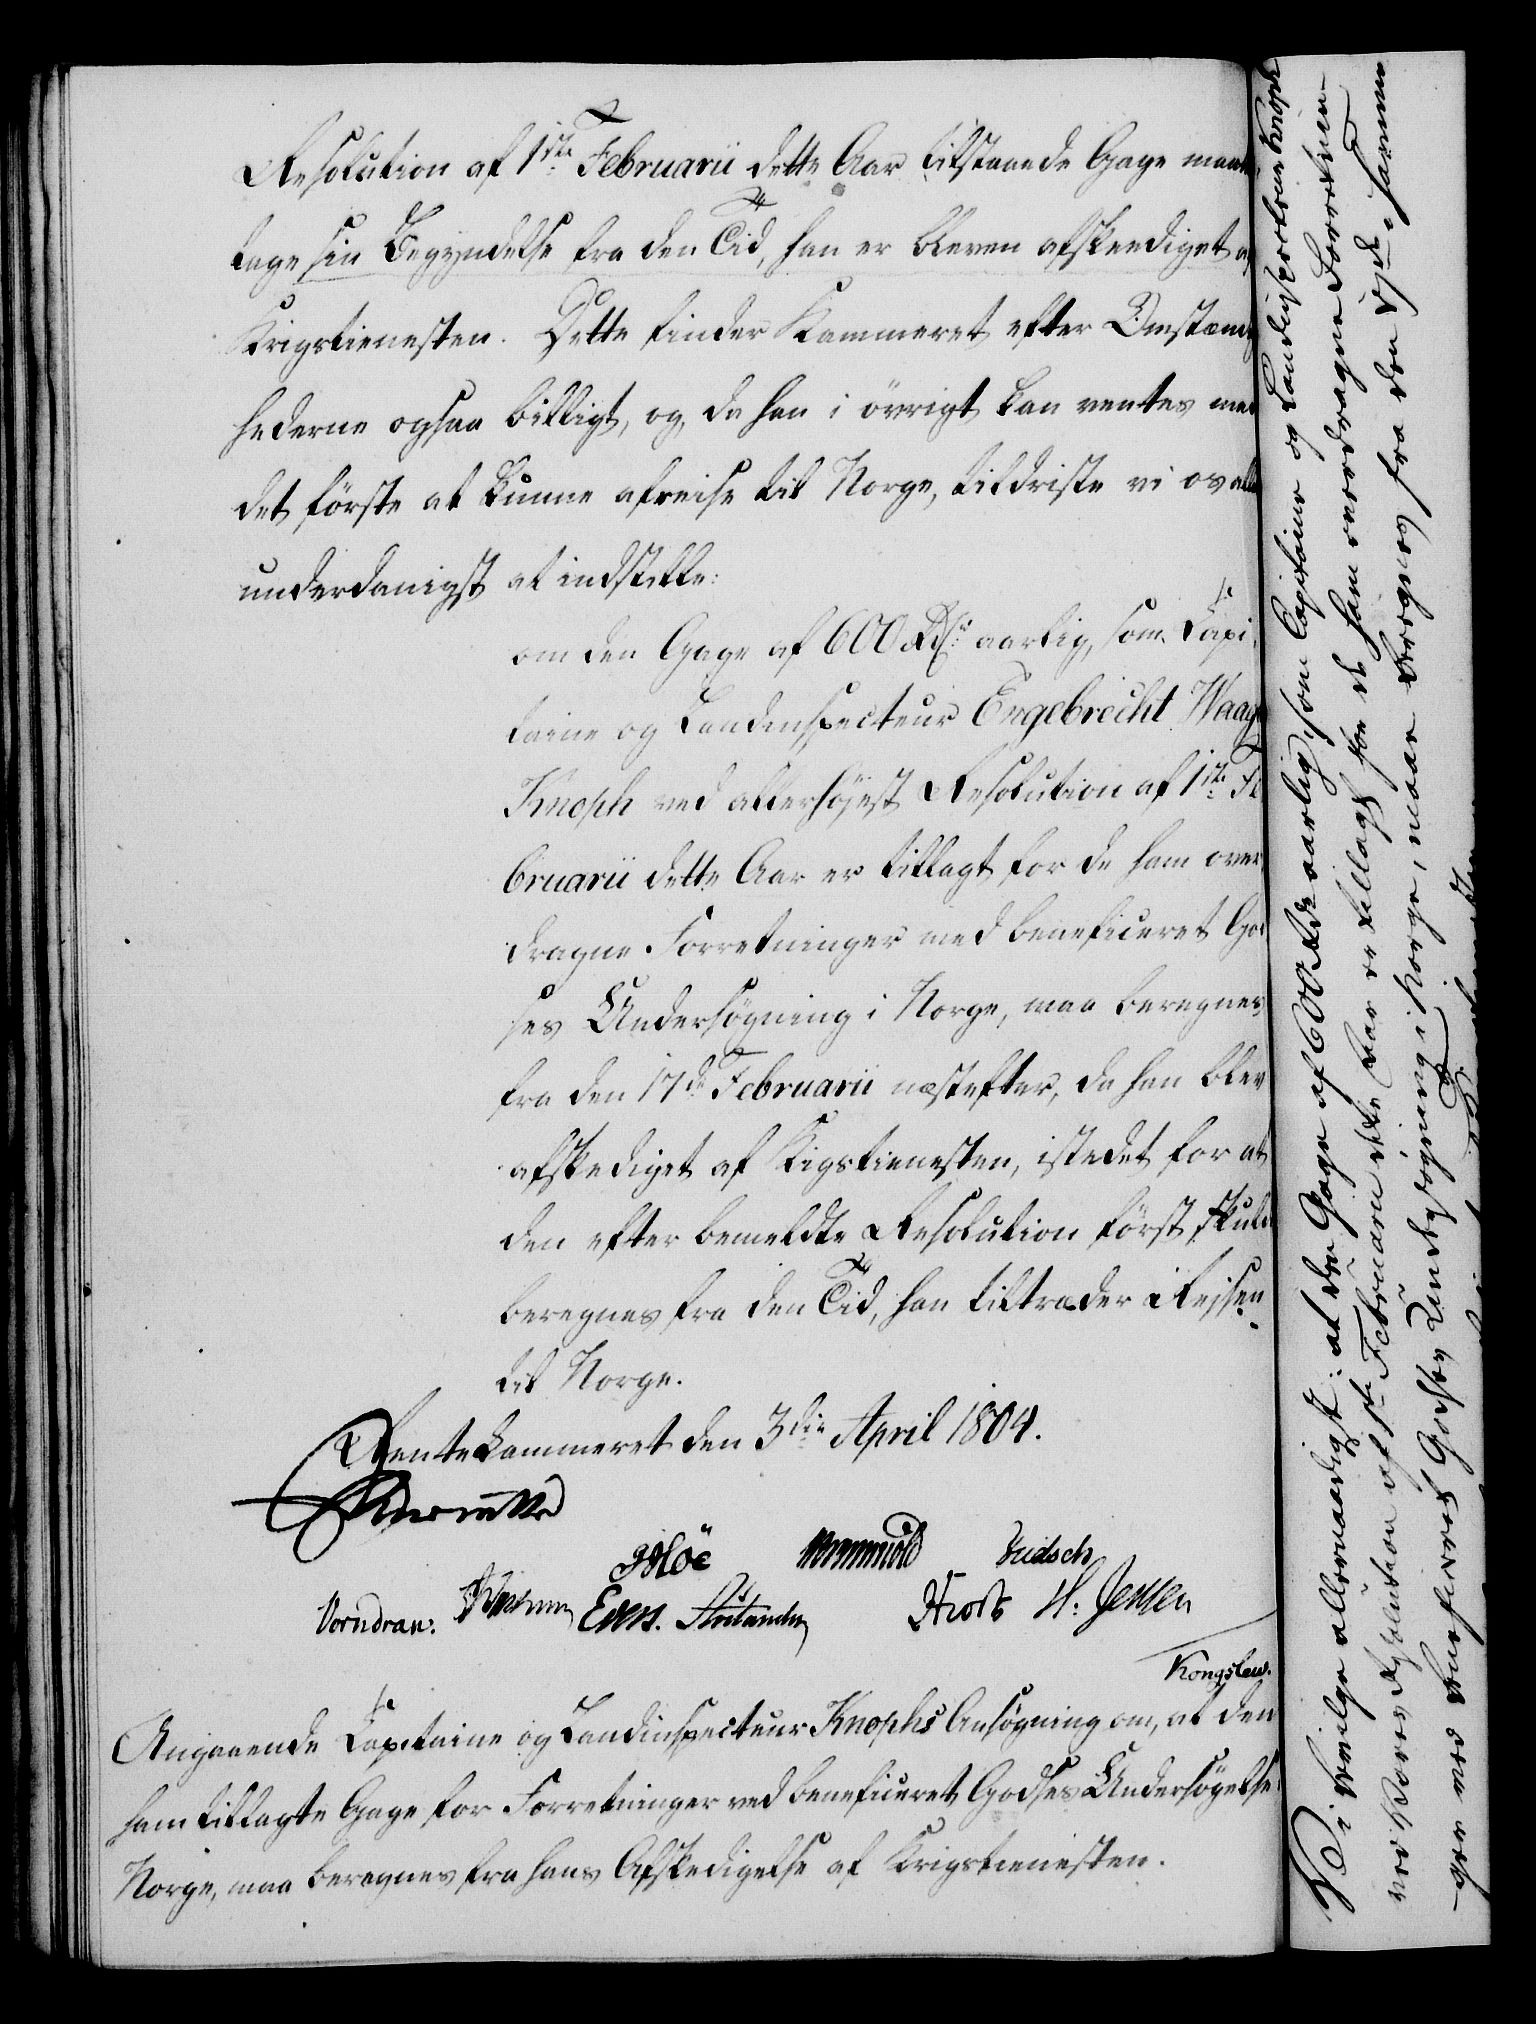 Resolution af 1ste Februarii dette Aar tilstaaede Gage maatte
tage sin Begyndelse fra den Tid, han er bleven afskeediget af
Krigstienesten. Dette finder Kammeret efter Omstændig
hederne ogsaa billigt, og, da han i övrigt kan ventes med
det förste at kunne afreise til Norge, tildriste vi os aller
underdanigst at indstille:
om den Gage af 600 Rdlr aarlig, som Capi-
taine og Landinspecteur Engebrecht Waage
Knoph ved allerhöjest Resolution af 1ste Fe
bruarii dette Aar er tillagt for de ham over
dragne Forretninger med beneficeret God
ses Undersögning i Norge, maa beregnes
fra den 17de Februarii næstefter, da han blev
afskediget af Kigstienesten, istedet for at
den efter bemeldte Resolution först skulde
beregnes fra den Tid, han tiltræder Rejsen
til Norge.
Rentekammeret den 3die April 1804.
Vorndran. Evers. Hiort H: Jensen
Kongslew.
Angaaende Capitaine og Landinspecteur Knophs Ansögning om, at den
ham tillagte Gage for Forretninger ved beneficeret Godses Undersögelse i
Norge, maa beregnes fra hans Afskedigelse af Krigstienesten.
Vi bevilge allernaadigst: at den Gage af 600 Rdlr aarlig, som Capitaine og Landinspecteur Knoph
ved Vores Resolution af 1ste Februarii dette Aar er tillagt for de ham overdragne Forretnin-
ger med beneficeret Godses Undersögning i Norge, maae beregnes fra den 17de i samme